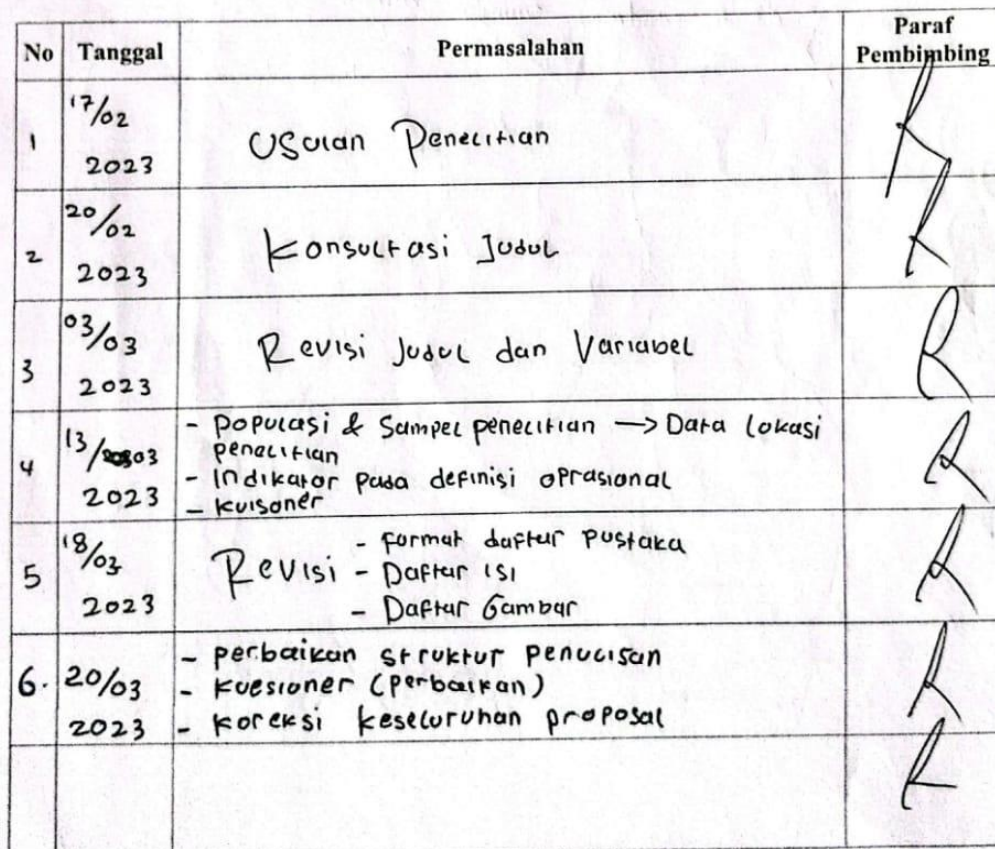 No Tanggal Permasalahan Paraf Pembimbing
1 17/02 2023 Usulan Penelitian
2 20/02 2023 Konsultasi Judul
3 03/03 2023 Revisi Judul dan Variabel
4 13/03 2023 - Populasi & Sampel penelitian —> Data lokasi
penelitian
- Indikator pada definisi oprasional
- kuisoner
5 18/03 2023 Revisi - format daftar pustaka
- Daftar isi
- Daftar Gambar
6. 20/03 2023 - perbaikan struktur penulisan
- kuesioner (perbaikan)
- koreksi keseluruhan proposal